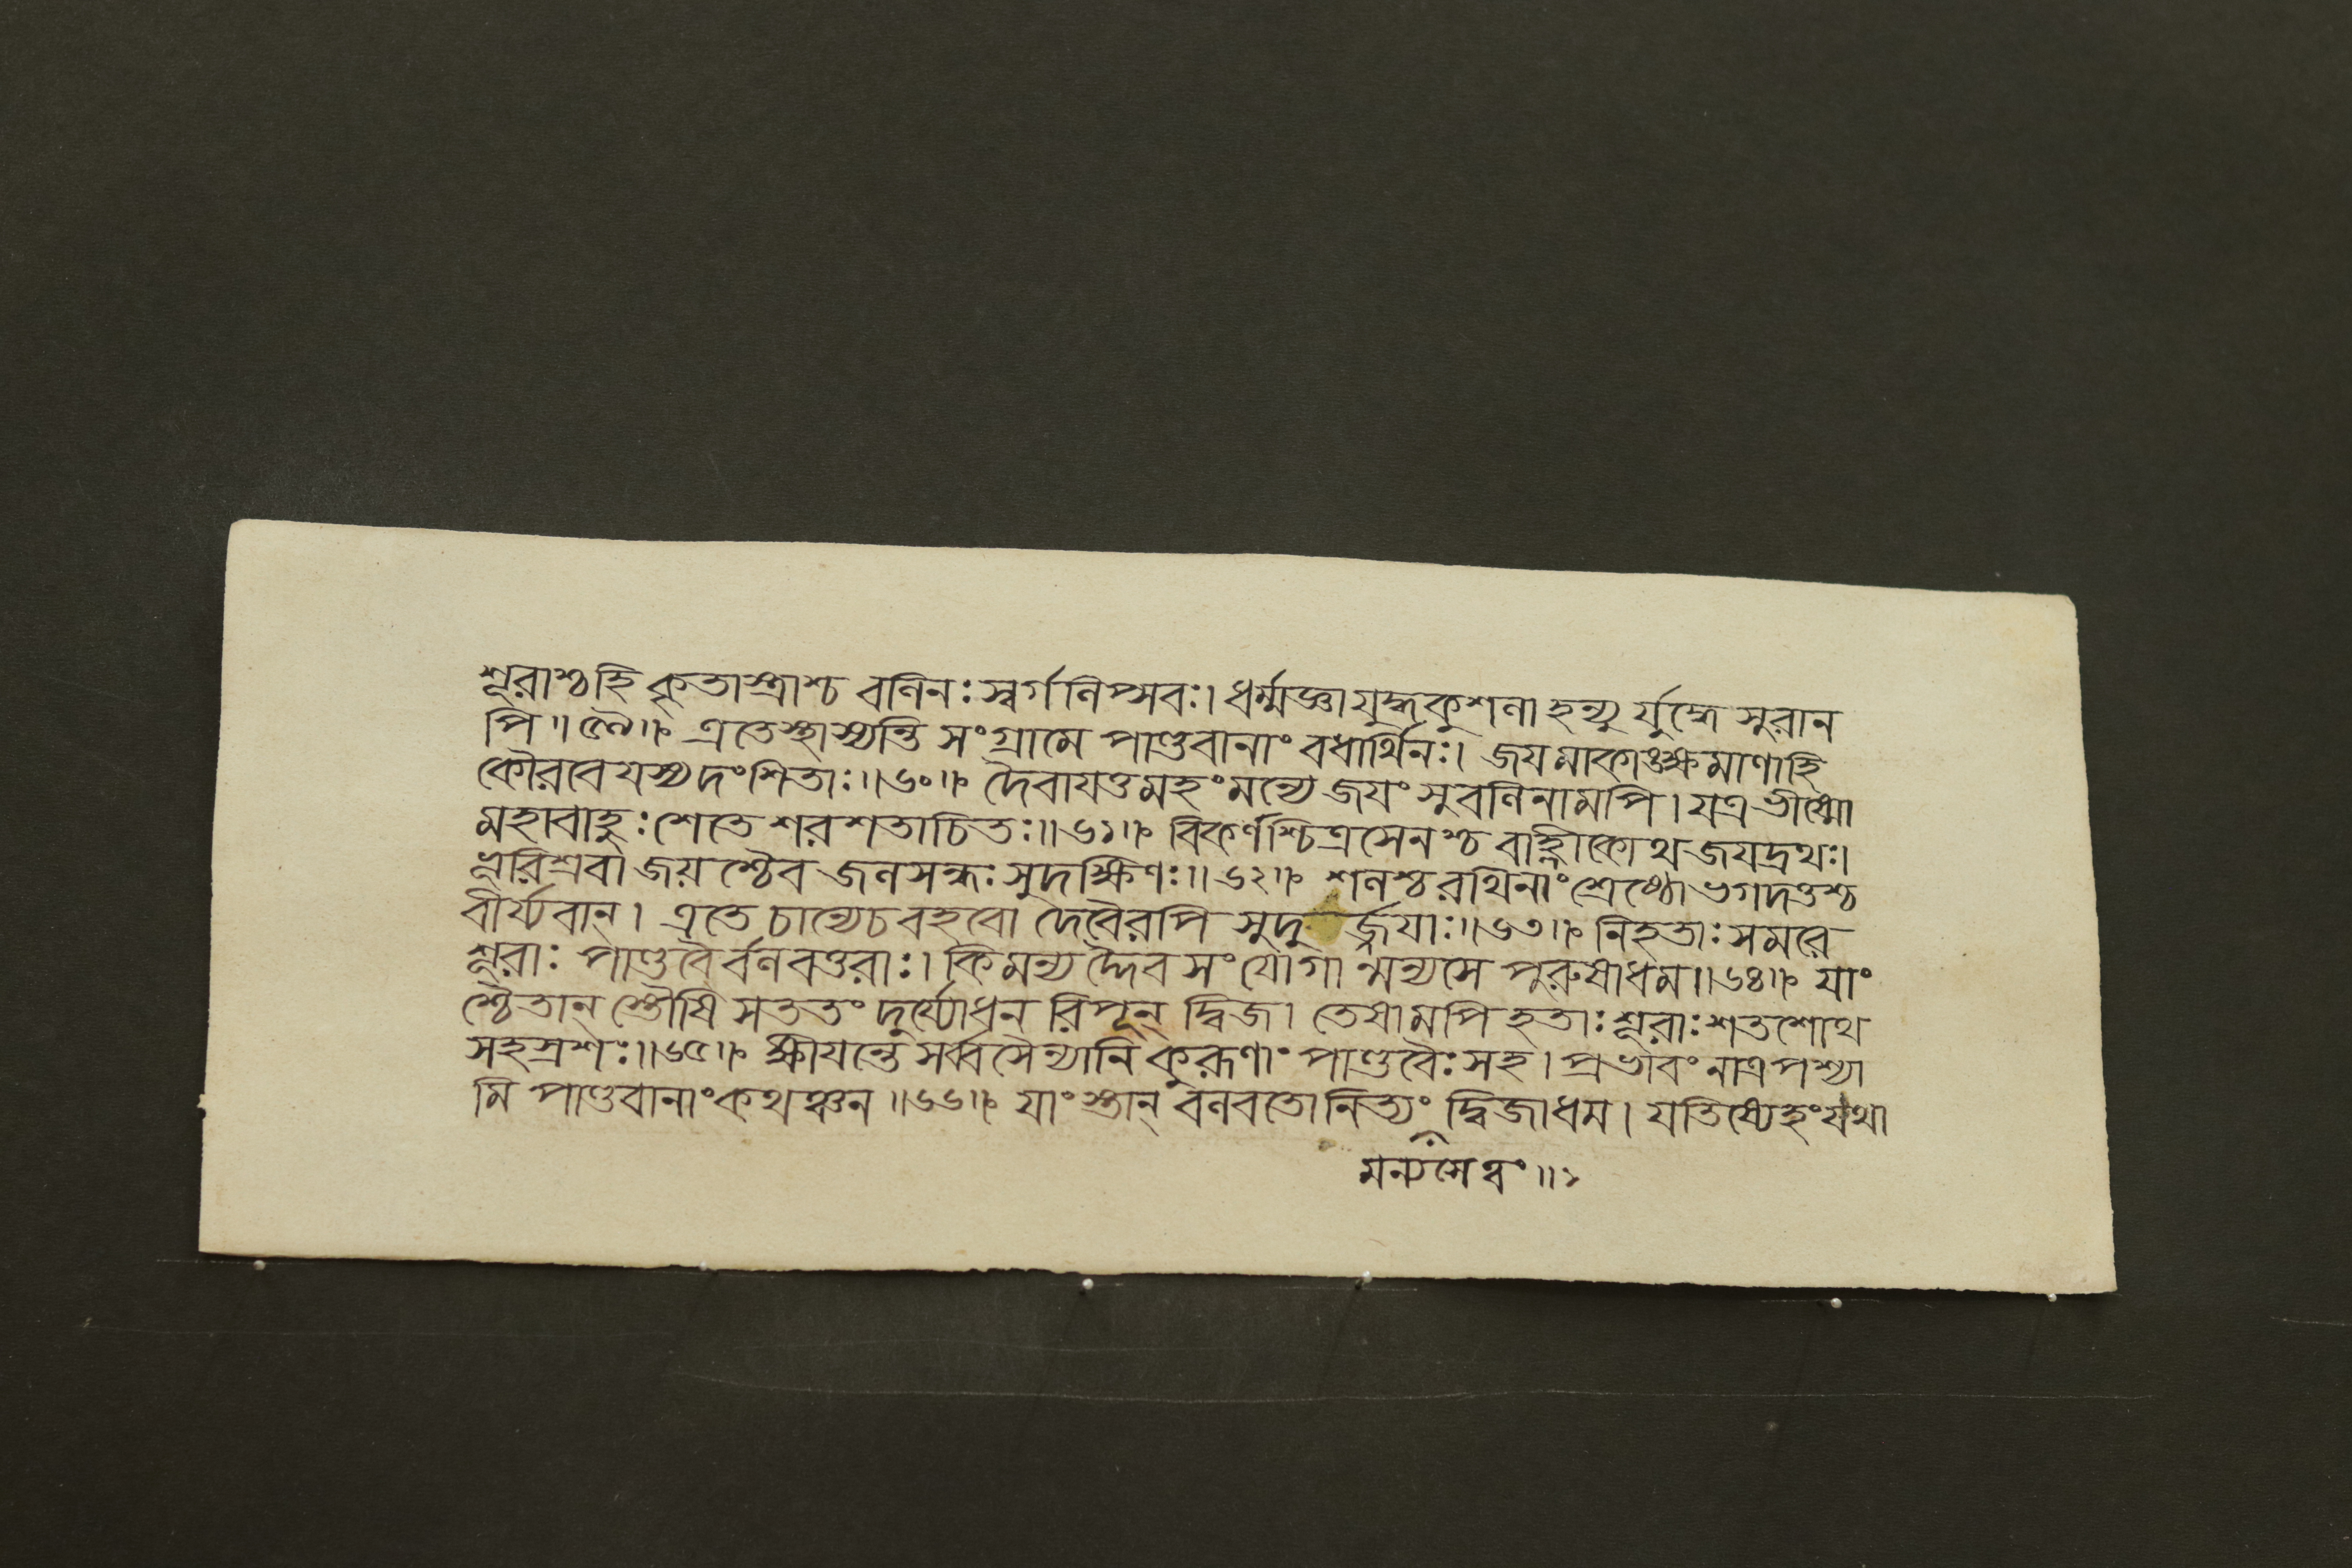 শূরাশ্চহি কৃতাস্ত্রাশ্চ বলিনঃ স্বর্গলিপ্সবঃ। ধর্ম্মজ্ঞা যুদ্ধকুশলা হন্যু র্যুদ্ধে সুরান
পি॥৫৯॥ এতেস্থাস্যন্তি সংগ্রামে পাণ্ডবানাং বধার্থিনঃ। জয়মাকাঙ্ক্ষমাণাহি
কৌরবেযস্যদংশিতাঃ॥৬০॥ দৈবাযত্তমহং মন্যে জযং সুবলিনামপি। যত্র ভীষ্মো
মহাবাহুঃ শেতে শরশতাচিতঃ॥৬১॥ বিকর্ণশ্চিত্রসেনশ্চ বাহ্লীকোথ জযদ্রথঃ।
ভূরিশ্রবা জয়শ্চৈব জলসন্ধঃ সুদক্ষিণঃ॥৬২॥ শলশ্চরথিনাং শ্রেষ্ঠো ভগদত্তশ্চ
বীর্য্যবান্। এতে চান্যেচ বহবো দেবৈরপি সুদু র্জ্জযাঃ॥৬৩॥ নিহতাঃ সমরে
শূরাঃ পাণ্ডবৈর্বলবত্তরাঃ। কিমন্য দ্দৈব সংযোগা ন্মন্যসে পুরুষাধম॥৬৪॥ যাং
শ্চৈতান্ স্তৌষি সততং দুর্য্যোধন রিপূন্ দ্বিজ। তেষামপি হতাঃ শূরাঃ শতশোথ
সহস্রশঃ॥৬৫॥ ক্ষীযন্তে সর্ব্বসৈন্যানি কুরূণাং পাণ্ডবৈঃ সহ। প্রভাবং নাত্র পশ্যা
মি পাণ্ডবানাং কথঞ্চন॥৬৬॥ যাং স্তান্ বলবতো নিত্যং দ্বিজাধম। যতিষ্যেহং যথা
মন্যসেত্বং॥১